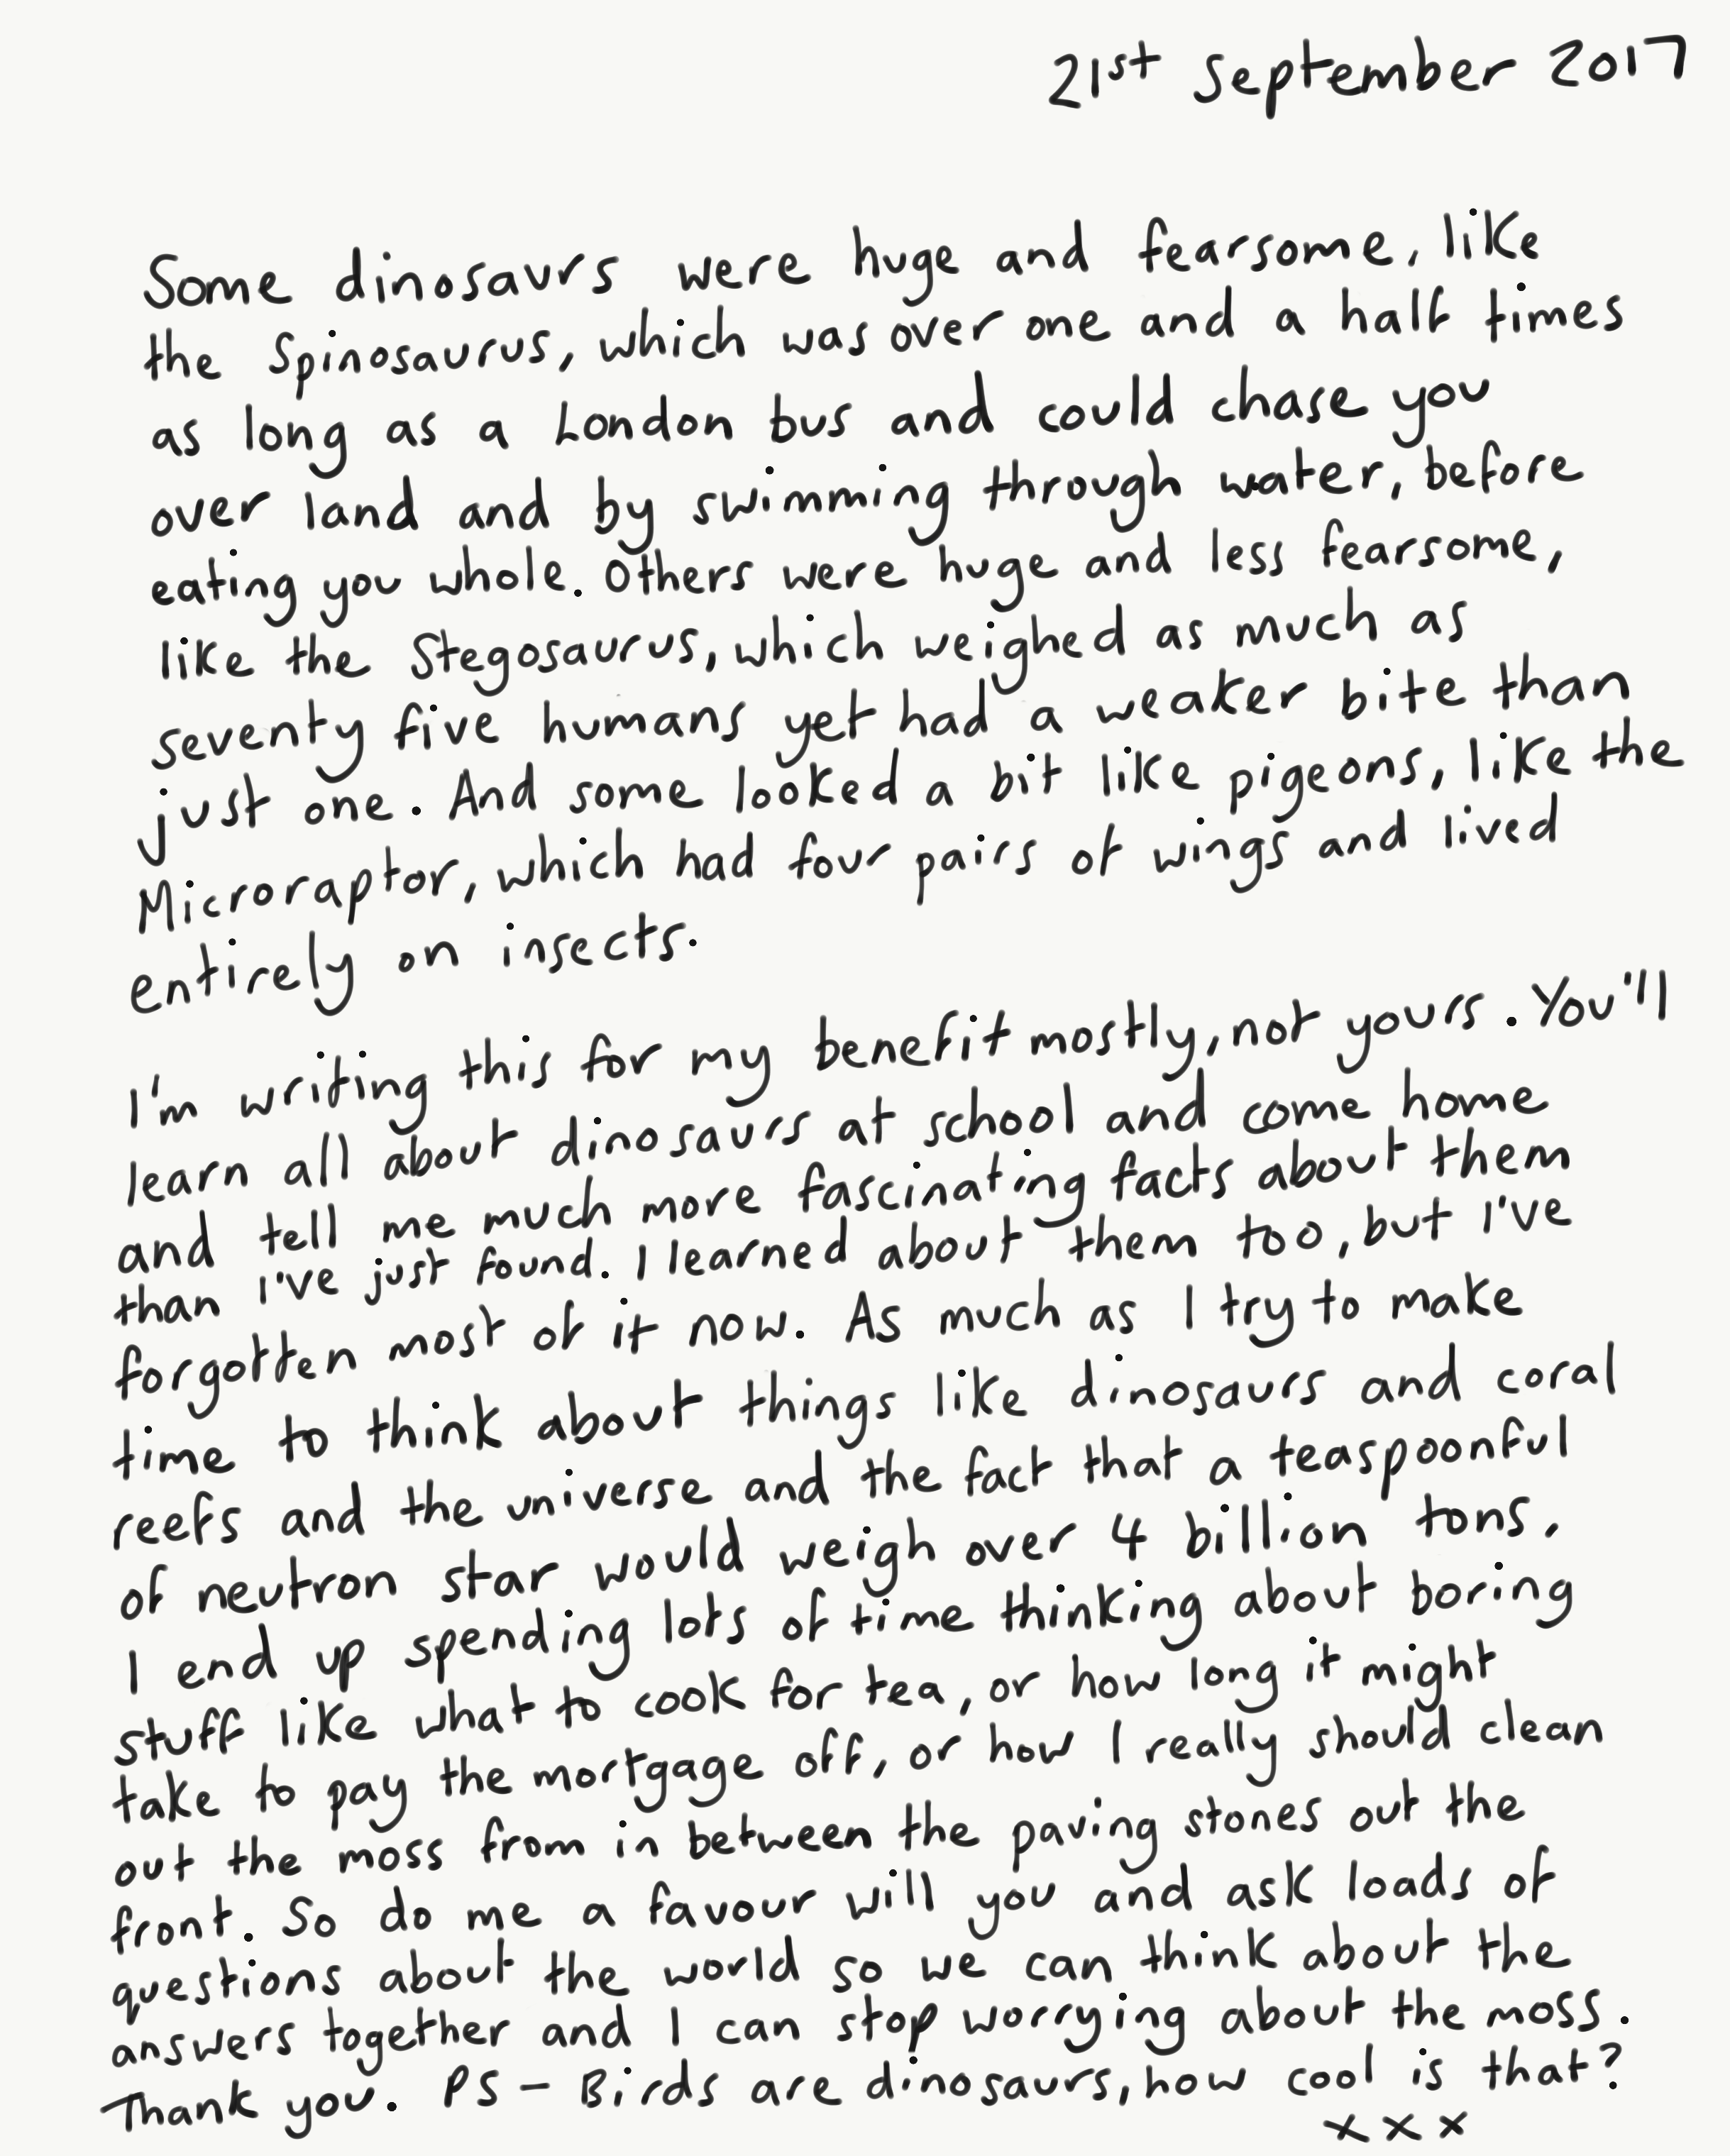 21st September 2017
Some dinosaurs were huge and fearsome, like
the Spinosaurus, which was over one and a half times
as long as a London bus and could chase you
over land and by swimming through water, before
eating you whole. Others were huge and less fearsome,
like the Stegosaurus, which weighed as much as
seventy five humans yet had a weaker bite than
just one. And some looked a bit like pigeons, like the
Microraptor, which had four pairs of wings and lived
entirely on insects.
I'm writing this for my benefit mostly, not yours. You'll
learn all about dinosaurs at school and come home
and tell me much more fascinating facts about them
than I've just found. I learned about them too, but I've
forgotten most of it now. As much as I try to make
time to think about things like dinosaurs and coral
reefs and the universe and the fact that a teaspoonful
of neutron star would weigh over 4 billion tons,
I end up spending lots of time thinking about boring
stuff like what to cook for tea, or how long it might
take to pay the mortgage off, or how I really should clean
out the moss from in between the paving stones out the
front. So do me a favour will you and ask loads of
questions about the world so we can think about the
answers together and I can stop worrying about the moss.
Thank you. PS - Birds are dinosaurs, how cool is that?
x x x